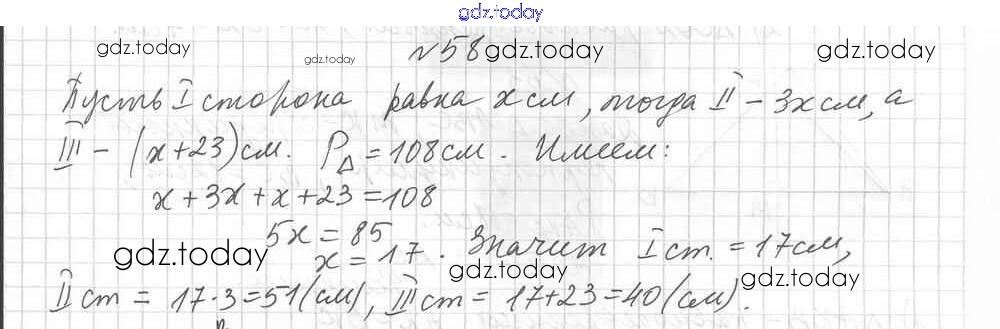 gdz.today
gdz.today №58 gdz.today gdz.today
gdz.today
Пусть I сторона равна x см, тогда II – 3x см, а
III – (x+23) см. P△ = 108 см. Имеем:
x + 3x + x + 23 = 108
5x = 85
x = 17. Значит I ст. = 17 см,
gdz.today gdz.today gdz.today
II ст = 17·3 = 51 (см), III ст = 17+23 = 40 (см).